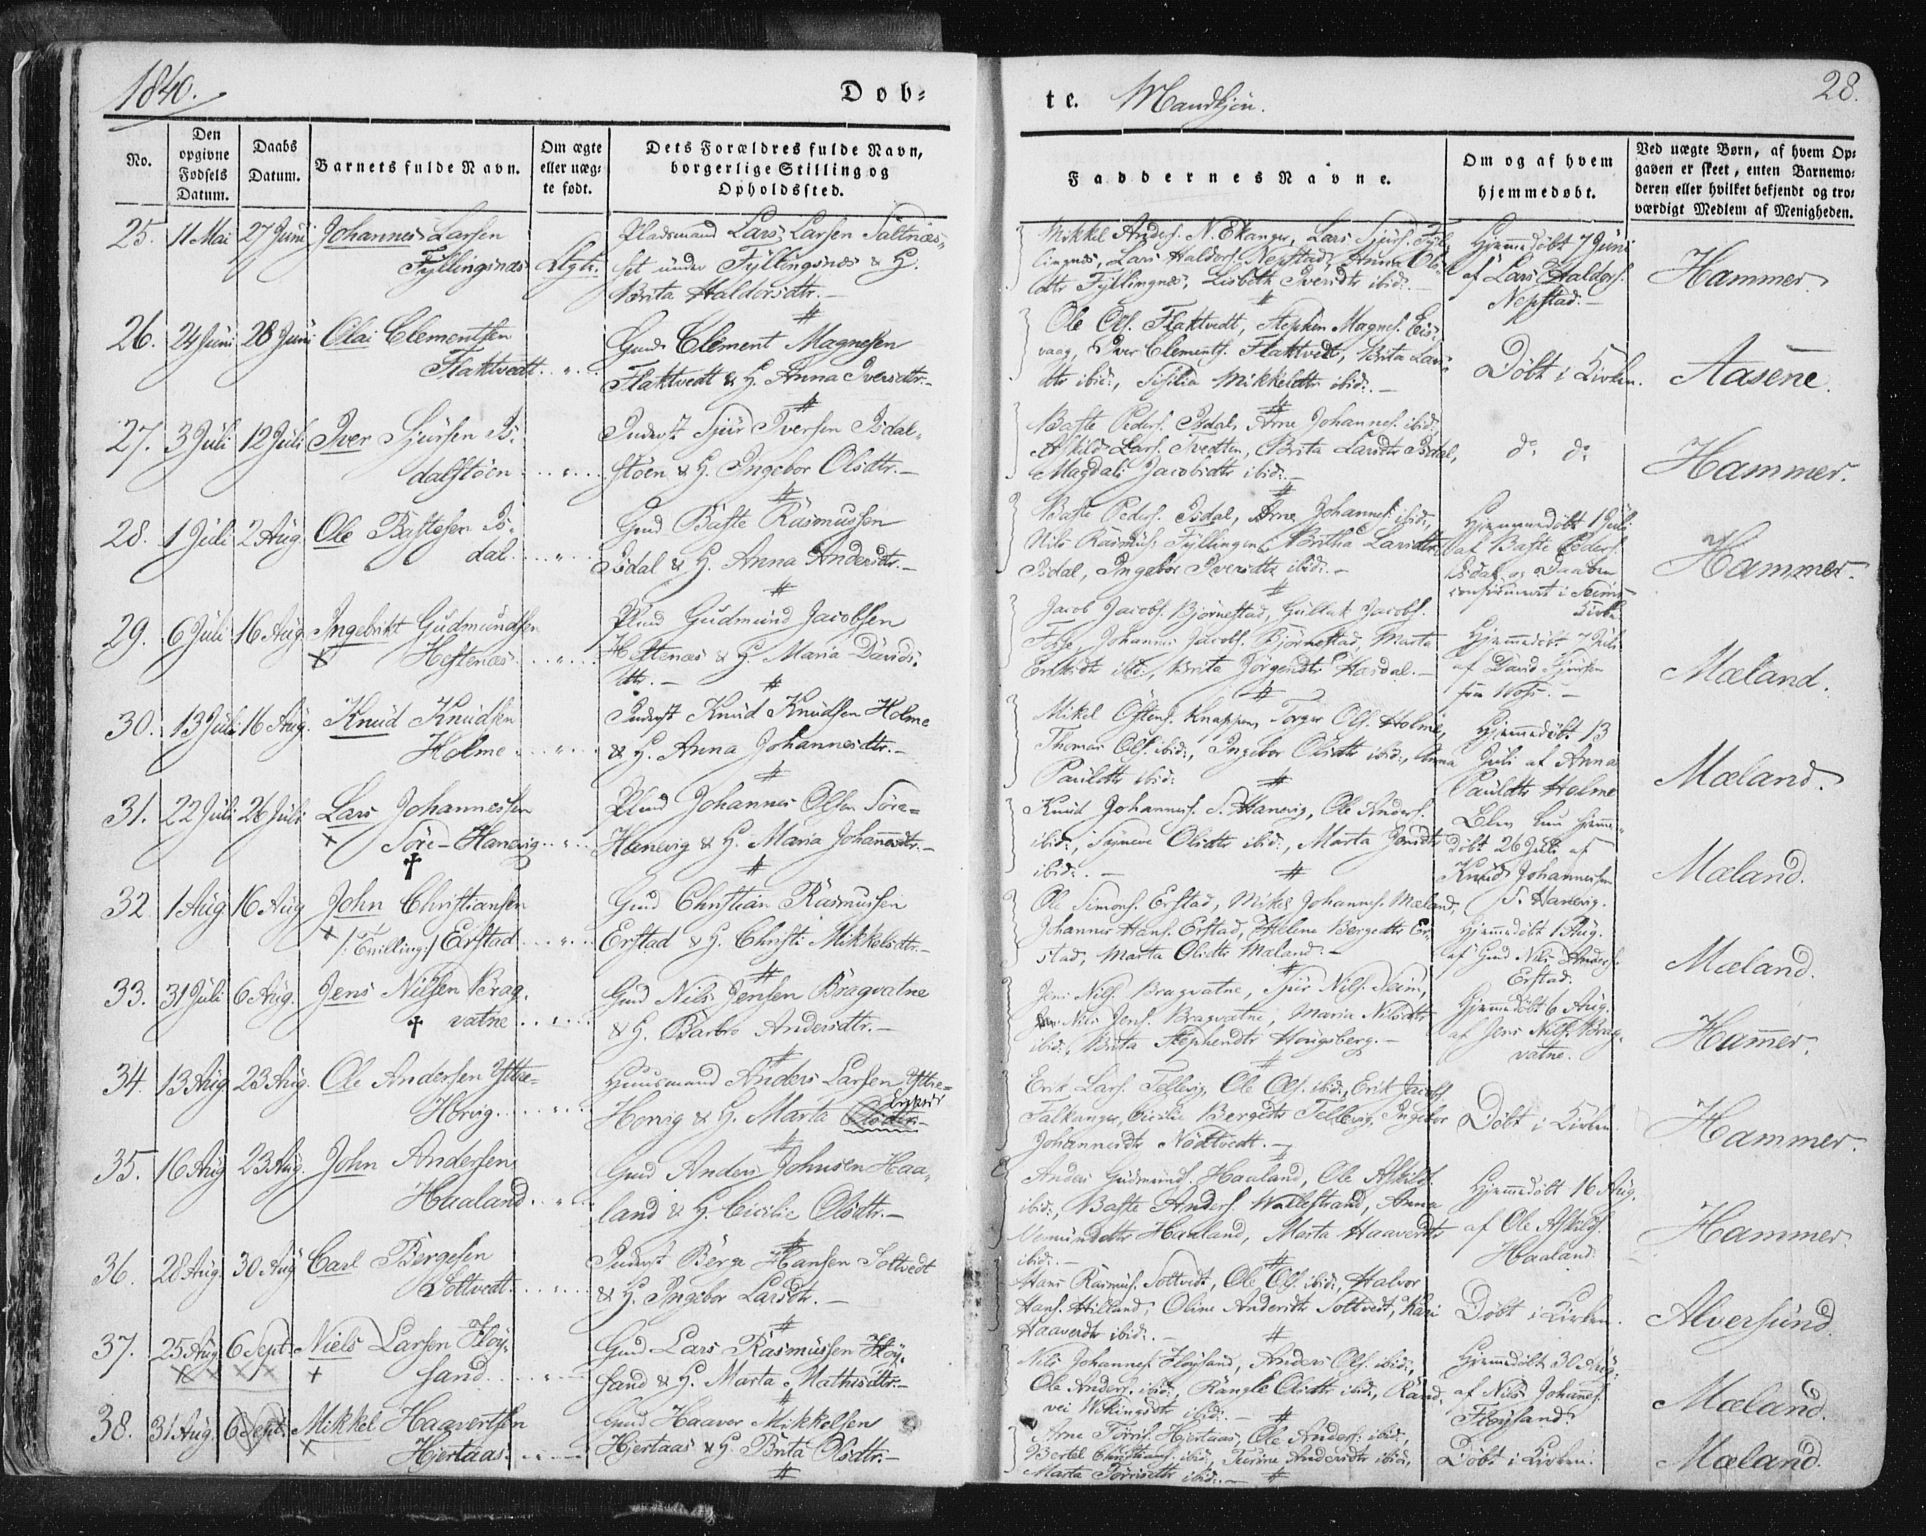 1840.
Dob-
te. Mandkjøn.
28.
No.
Den opgivne Fødsels Datum.
Daabs Datum.
Barnets fulde Navn.
Om ægte eller uægte født.
Dets Forældres fulde Navn, borgerlige Stilling og Opholdssted.
Faddernes Navne.
Om og af hvem hjemmedøbt.
Ved uægte Børn, af hvem Opgaven er skeet, enten Barnemoderen eller hvilket bekjendt og troværdigt Medlem af Menigheden.
25. 11 Mai 27 Juni Johannes Larsen
Fyllingsnæs
Pladsmand Lars Larsen Saltnæs-
set under Fyllingsnæs & H.
Brita Haldorsdtr. –
Mikkel Anders. N. Ekanger, Lars Sjurs. Fyl-
lingnæs, Lars Haldors. Nepstad, Anna Ols-
dtr Fyllingnæs, Lisbeth Iversdtr ibid: –
Hjemmedøbt 7 Juni
af Lars Haldors.
Nepstad. –
Hammer
26. 24 Juni 28 Juni Olai Clementsen
Flaktvedt
Gmd Clement Magnesen
Flaktvedt & H. Anna Iversdtr. –
Ole Ols. Flaktvedt, Stephen Magnes. Eis-
vaag, Iver Clements. Flaktvedt, Brita Lars-
dtr ibid:, Sisilia Mikkelsdtr ibid: –
Døbt i Kirken.
Aasene.
27. 3 Juli 12 Juli Iver Sjursen Is-
dalstøen
Inderst Sjur Iversen Isdal-
støen & H. Ingebor Olsdtr. –
Baste Peders. Isdal, Arne Johannes. ibid:
Askild Lars. Tvedten, Brita Larsdtr Isdal,
Magdali Jacobsdtr ibid: –
do do
Hammer.
28. 1 Juli 2 Aug. Ole Bastesen Is-
dal
Gmd Baste Rasmussen
Isdal & H. Anna Andersdtr. –
Baste Peders. Isdal, Arne Johannes. ibid:,
Nils Rasmus. Fyllingen, Britha Larsdtr
Isdal, Ingebor Iversdtr ibid: –
Hjemmedøbt 1 Juli
af Baste Peders.
Isdal og Daaben
confirmeret i Seims
Kirke
Hammer.
29. 6 Juli 16 Aug. Ingebrikt Gudmundsen
Hestenæs
Gudmund Jacobsen
Hestenæs & H. Maria Davids-
dtr. –
Jacob Jacobs. Bjørnestad,
Johannes Jacobs. Bjørnestad, Marta
ibid:, Brita Jørgensdtr Hasdal. –
Hjemmedøbt 7 Juli
af David Sjursen
Mæland.
30. 13 Juli 16 Aug. Knud Knudsen
Holme
Inderst Knud Knudsen Holme
& H. Anna Johannesdtr. –
Mikel Østens. Knappen, Torger Ols. Holme,
Thomas Ols. ibid:, Ingebor Olsdtr ibid:, Anna
Paulsdtr ibid:
Hjemmedøbt 13
Juli af Anna
Paulsdtr Holme
Mæland.
31. 22 Juli 26 Juli Lars Johannessen
Søre-Hanevig
Johannes Olsen Søre-
Hanevig & H. Maria Johannesdtr. –
Knud Johannes. S. Hanevig, Ole Anders.
ibid:, Synneve Olsdtr ibid:, Marta Jonsdtr
ibid: –
Blev kun hjemme-
døbt 26 Juli af
Knud Johannessen
S. Hanevig.
Mæland.
32. 1 Aug 16 Aug John Christiansen
/: Tvilling :/ Erstad
Gmd Christian Rasmussen
Erstad & H. Christi Mikkelsdtr. –
Ole Simons. Erstad, Mikel Johannes. Mæland,
Johannes Hans. Erstad, Helene Bergesdtr Er-
stad, Marta Olsdtr Mæland. –
Hjemmedøbt 1 Aug.
af Gmd Nils Anders.
Erstad.
Mæland.
33. 31 Juli 6 Aug. Jens Nilsen Brag-
vatne
Gmd Nils Jensen Bragvatne
& H. Barbro Andersdtr. –
Jens Nils. Bragvatne, Sjur Nils. Seim,
Nils Jens. Bragvatne, Maria Nilsdtr
ibid:, Brita Stephensdtr Hougsberg. –
Hjemmedøbt 6 Aug.
af Jens Nils. Brag-
vatne.
Hammer.
34. 13 Aug 23 Aug. Ole Andersen Yttre-
Horvig
Huusmand Anders Larsen Yttre-
Horvig & H. Marta Olsdtr. –
Erik Lars. Tellevig, Ole Ols. ibid:, Erik Jacobs.
Falkanger, Cicilie Bergesdtr Tellevig, Ingebor
Johannesdtr Nødtvedt. –
Døbt i Kirken
Hammer.
35. 16 Aug 23 Aug. John Andersen
Haaland
Gmd Anders Johnsen Haa-
land & H. Cicilie Olsdtr. –
Anders Gudmund. Haaland, Ole Askilds.
ibid:, Baste Anders. Wallestrand, Anna
Haaland, Marta Haaversdtr
ibid: –
Hjemmedøbt 16 Aug.
af Ole Askilds.
Haaland.
Hammer.
36. 28 Aug. 30 Aug Carl Bergesen
Soltvedt
Inderst Berge Hansen Soltvedt
& H. Ingebor Larsdtr. –
Hans Rasmus. Soltvedt, Ole Ols. ibid:, Halvor
Hans. Hilland, Oline Andersdtr Soltvedt, Kari
Haaversdtr ibid: –
Døbt i Kirken.
Alversund.
37. 25 Aug 6 Sept. Niels Larsen Fløy-
sand
Gmd Lars Rasmussen Fløy-
sand & H. Marta Mathisdtr. –
Nils Johannes. Fløysand, Anders Ols. ibid:,
Ole Anders. ibid:, Rangle Olsdtr ibid:, Rand-
vei Wikingsdtr ibid: –
Hjemmedøbt 30 Aug.
af Nils Johannes.
Fløysand
Mæland.
38. 31 Aug. 6 Sept. Mikkel Haavertsen
Hjertaas
Gmd Haaver Mikkelsen
Hjertaas & H. Brita Olsdtr. –
Arne Torris. Hjertaas, Ole Anders. ibid:,
Bertel Christians. ibid:, Turine Andersdtr ibid:,
Marta Torrisdtr ibid: –
Døbt i Kirken.
Mæland.